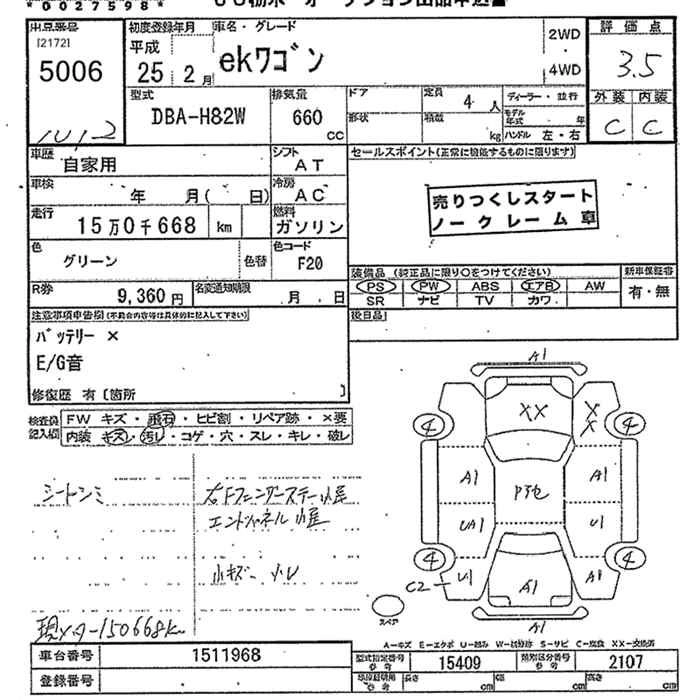 *0027598*
出品番号 初度登録年月 車名・グレード 2WD 評価点
[2172] 平成
5006 25年2月 ekワゴン 4WD 3.5
型式 排気量 ドア 定員 4人 ディーラー・並行 外装 内装
DBA-H82W 660 cc 形状 積載 kg モデル年式 年 C C
ハンドル 左・右
車歴 自家用 シフト AT セールスポイント(正常に機能するものに限ります)
車検 年 月( 日) 冷房 AC 売りつくしスタート
走行 15万0千668 km 燃料 ガソリン ノークレーム車
色 グリーン 色替 色コード F20
装備品 (純正品に限り○をつけてください) 新車保証書
R券 9,360円 名変通知期限 月 日 PS PW ABS エアB AW 有・無
SR ナビ TV カワ
注意事項申告欄(不具合内容等は具体的に記入して下さい) 後日品
バッテリー ×
E/G音
修復歴 有〔箇所 〕
検査員記入欄 FW キズ・飛石・ヒビ割・リペア跡・×要
内装 キズ・汚レ・コゲ・穴・スレ・キレ・破レ
A1
XX X X
4 4
A1 A1
シートシミ 右Fフェンダーステー
エンドパネル
UA1 U1
小キズ
4 4
C2 U1 A1 A1
スペア
A1
現メーター150668km
A-キズ E-エクボ U-凹み W-補修跡 S-サビ C-腐食 XX-交換済
車台番号 1511968 型式指定番号 参考 15409 類別区分番号 参考 2107
登録番号 参考 長さ cm 幅 cm 高さ cm